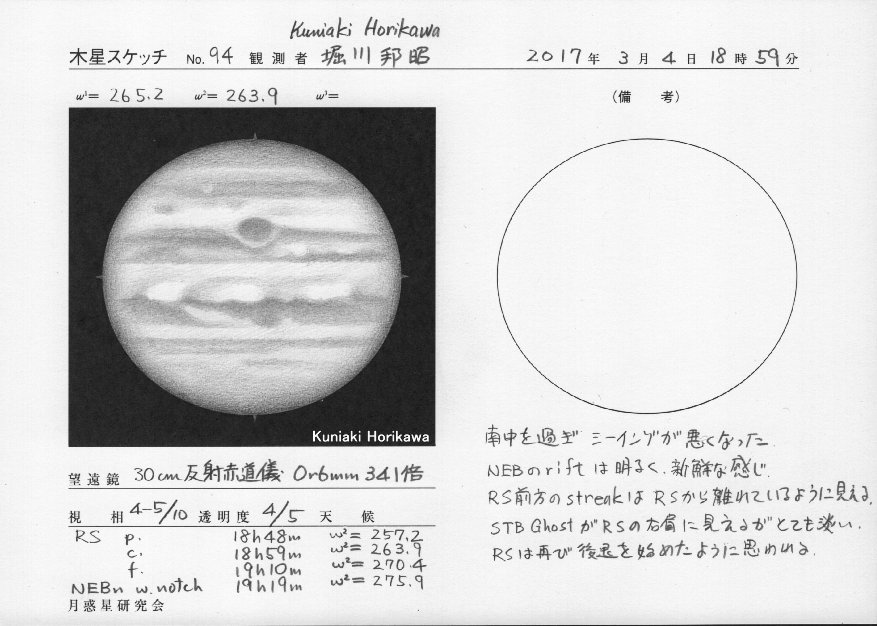 Kuniaki Horikawa
木星スケッチ No. 94 観測者 堀川邦昭 2017年 3月 4日 18時 59分
ω¹= 265.2 ω²= 263.9 ω³=
(備 考)
Kuniaki Horikawa
南中を過ぎ シーイングが悪くなった.
NEBのriftは明るく、新鮮な感じ.
RS前方のstreakはRSから離れているように見える.
STB GhostがRSの右肩に見えるがとても淡い.
RSは再び後退を始めたように思われる.
望遠鏡 30cm反射赤道儀 Or6mm 341倍
視 相 4-5/10 透明度 4/5 天 候
RS p. 18h48m ω²= 257.2
c. 18h59m ω²= 263.9
f. 19h10m ω²= 270.4
NEBn w. notch 19h19m ω²= 275.9
月惑星研究会